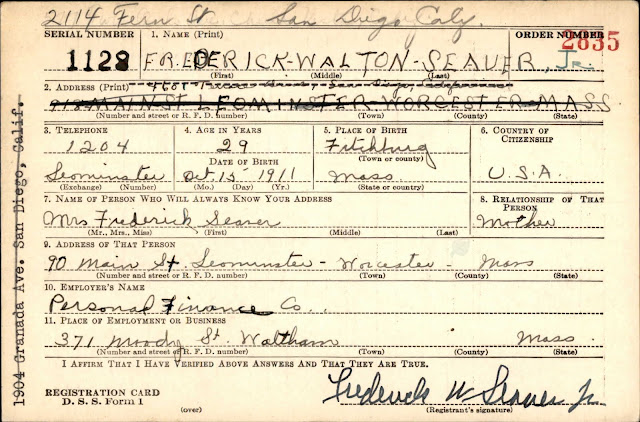 2114 Fern St San Diego Caly.
SERIAL NUMBER 1. NAME (Print) ORDER NUMBER
1128 FREDERICK-WALTON-SEAVER, Jr. 2835
(First) (Middle) (Last)
2. ADDRESS (Print) San Diego
918 MAIN ST LEOMINSTER-WORCESTER-MASS
(Number and street or R. F. D. number) (Town) (County) (State)
3. TELEPHONE 4. AGE IN YEARS 5. PLACE OF BIRTH 6. COUNTRY OF CITIZENSHIP
1204 29 Fitchburg
DATE OF BIRTH (Town or county)
Leominster Oct 15 1911 Mass U.S.A.
(Exchange) (Number) (Mo.) (Day) (Yr.) (State or country)
7. NAME OF PERSON WHO WILL ALWAYS KNOW YOUR ADDRESS 8. RELATIONSHIP OF THAT PERSON
Mrs Frederick Seaver Mother
(Mr., Mrs., Miss) (First) (Middle) (Last)
9. ADDRESS OF THAT PERSON
90 Main St. Leominster - Worcester - Mass
(Number and street or R. F. D. number) (Town) (County) (State)
10. EMPLOYER'S NAME
Personal Finance Co.
11. PLACE OF EMPLOYMENT OR BUSINESS
371 Moody St. Waltham Mass.
(Number and street or R. F. D. number) (Town) (County) (State)
I AFFIRM THAT I HAVE VERIFIED ABOVE ANSWERS AND THAT THEY ARE TRUE.
REGISTRATION CARD
D. S. S. Form 1 (over) Frederick W Seaver Jr
(Registrant's signature)
1904 Granada Ave. San Diego, Calif.